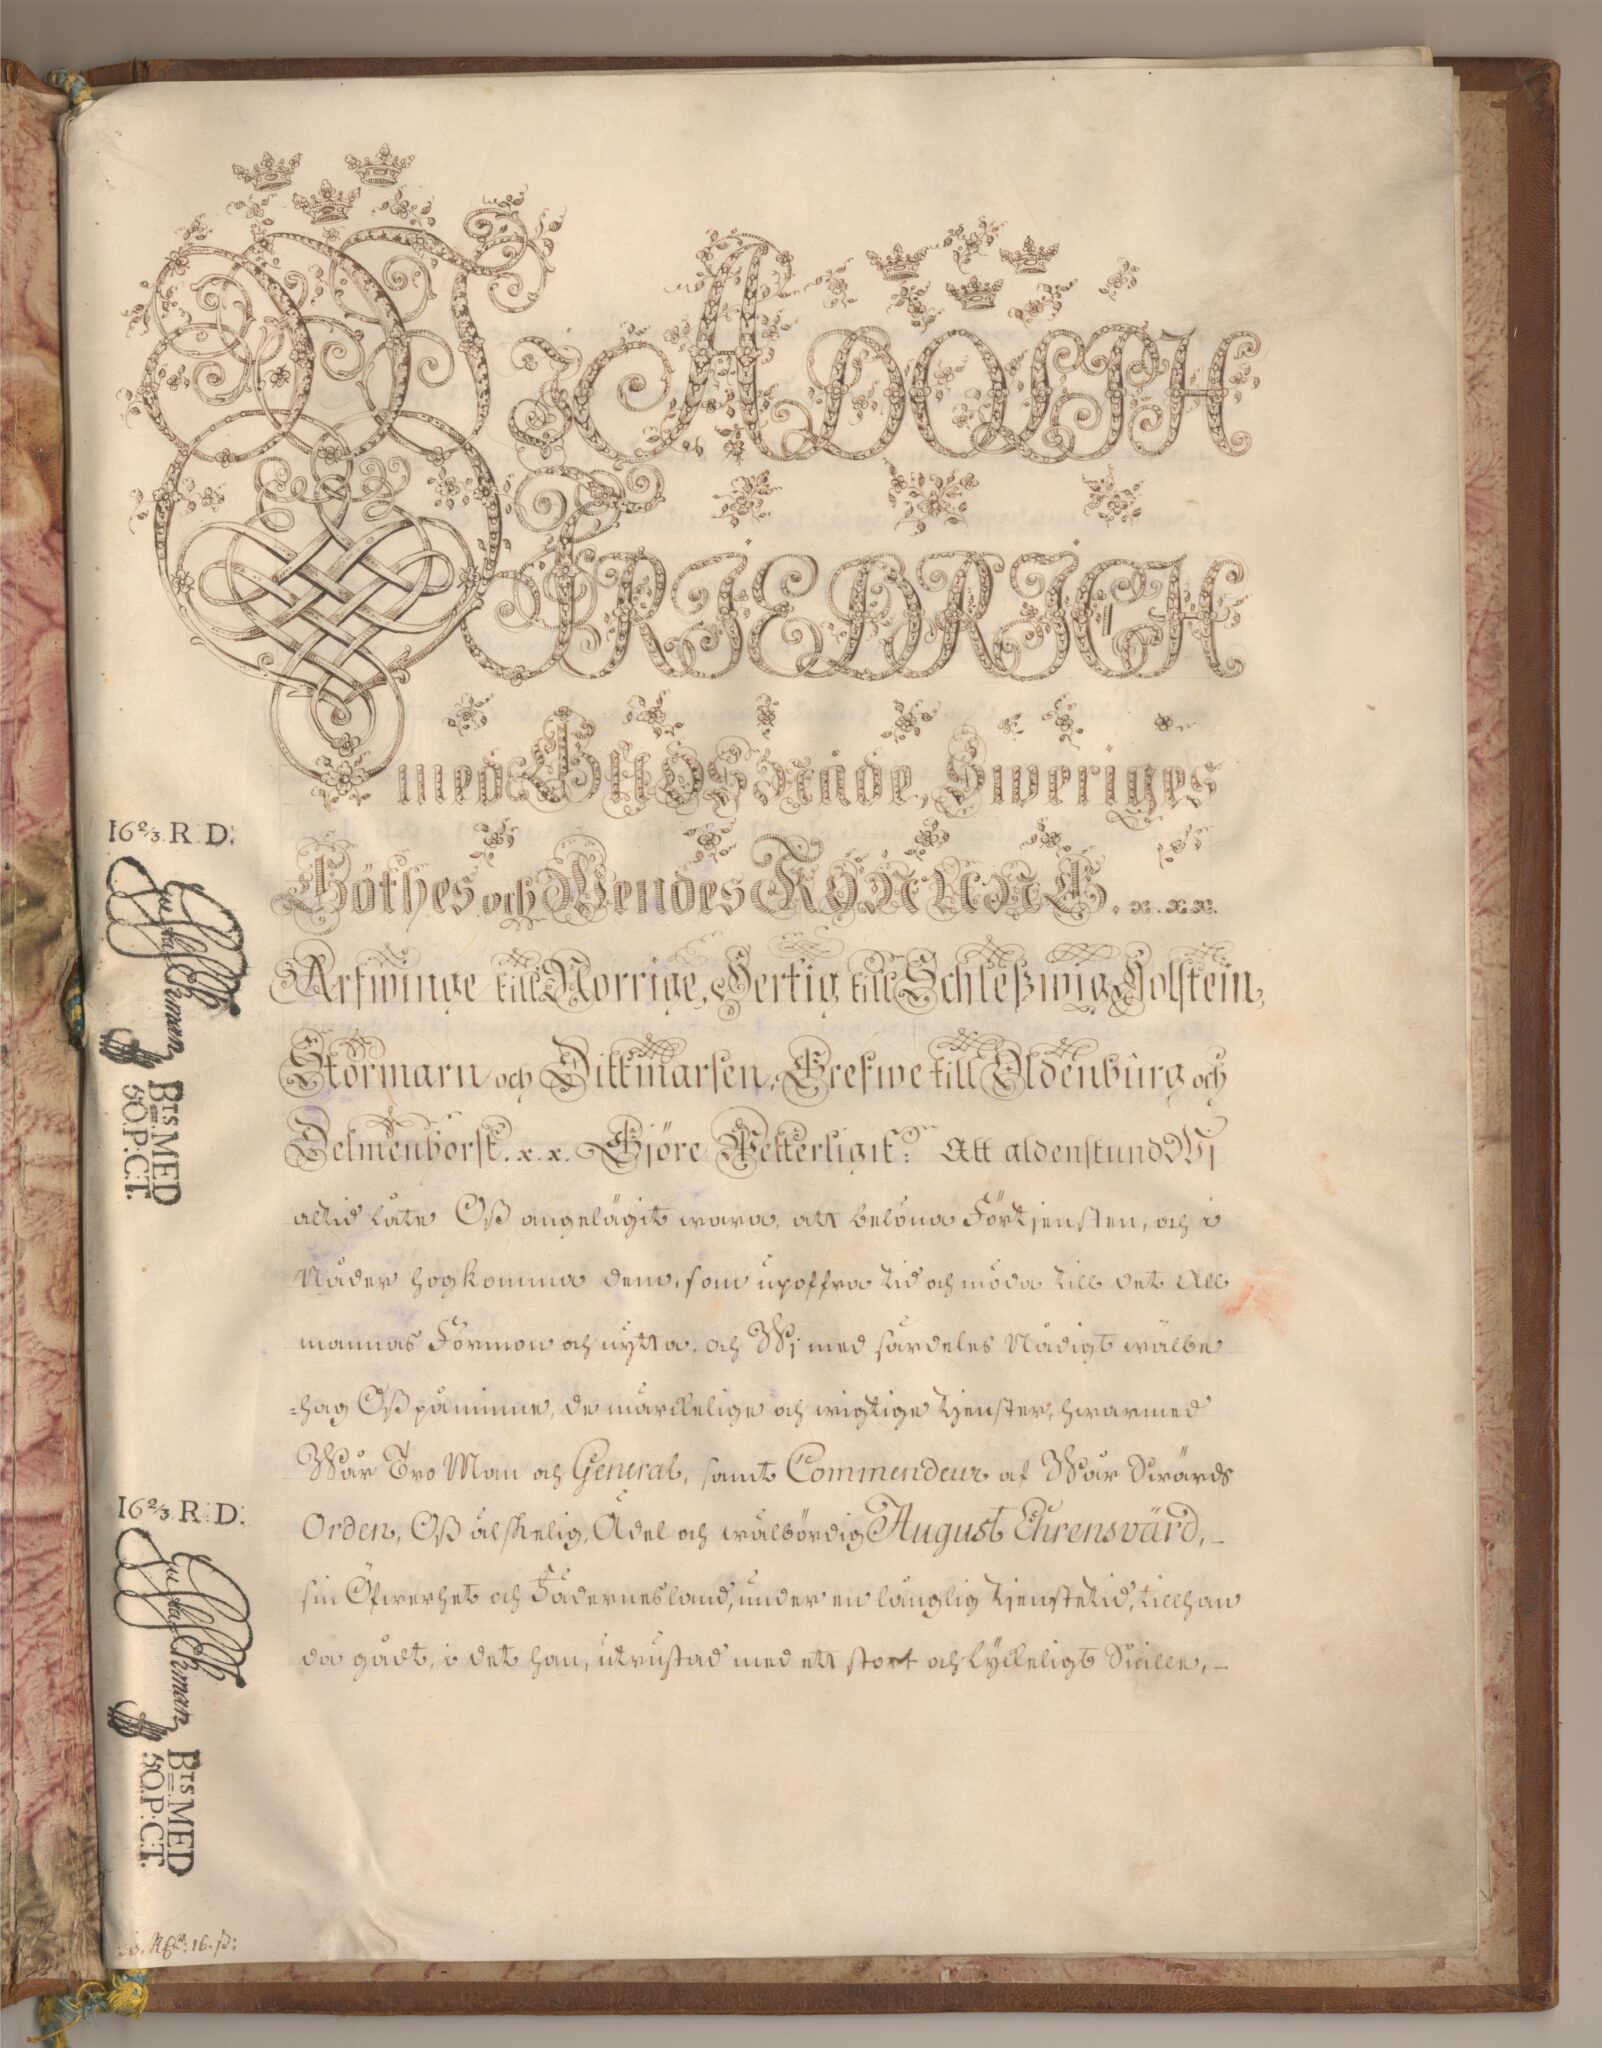 Wi ADOLPH
FRIEDRICH
med GUDS Nåde, Sweriges
Göthes och Wendes KONUNG. x. x.x.
Arfwinge till Norrige, Hertig till Schleßwig Holstein,
Stormarn och Dittmarsen, Grefwe till Oldenburg och
Delmenhorst. x. x. Gjöre Wetterligit: Att aldenstund Wj
altid låte Oß angelägit wara, att belöna Förtjensten, och i
Nåder hogkomma dem, som upoffra tid och möda till det All
männas Förmon och nytta, och Wj med särdeles Nådigt wälbe
=hag Oß påminne, de märckelige och wigtige tjenster, hwarmed
Wår Tro Man och General, samt Commendeur af Wår Swärds
Orden, Oß älskelig, Ädel och wälbördig August Ehrensvärd,
sin Öfwerhet och Fädernesland, under en långlig tjenstetid, tillhan
da gådt, i det han, utrustad med ett stort och lyckeligt Snille,
16 2/3. R: D:
Gustaf Ekman
Bts. MED
50. P: C:T.
16 2/3. R: D:
Gustaf Ekman
Bts. MED
50. P: C:T.